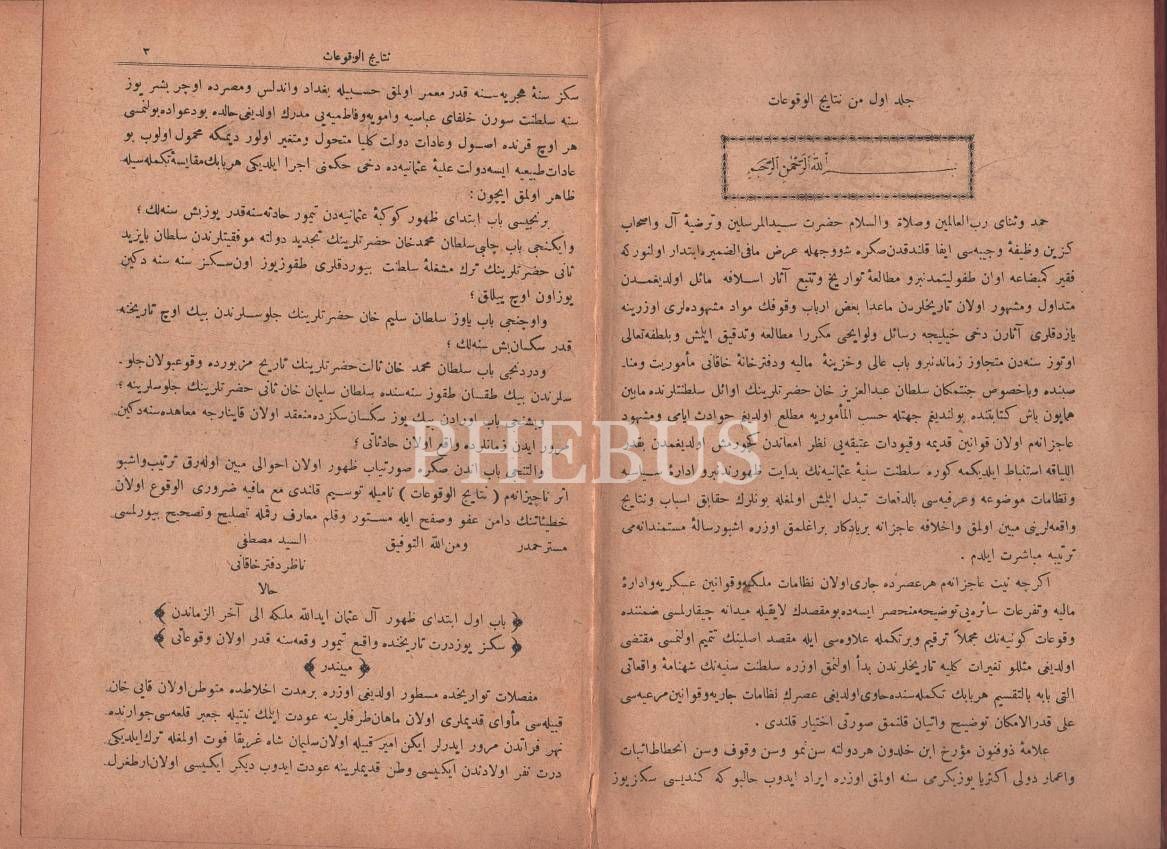 جلد اول من نتایج الوقوعات
بسم الله الرحمن الرحیم
حمد وثنای رب‌العالمین وصلاة والسلام حضرت سیدالمرسلین وترضیۀ آل واصحاب
کزین وظیفۀ وجیبه‌سی ایفا قلندقدن‌صکره شووجهله عرض مافی‌الضمیره‌ابتدار اولنورکه
فقیر کمبضاعه اوان طفولیتمدنبرو مطالعۀ تواریخ وتتبع آثار اسلافه مائل اولدیغمدن
متداول ومشهور اولان تاریخلردن ماعدا بعض ارباب وقوفك مواد مشهوده‌لری اوزرینه
یازدقلری آثارن دخی خیلیجه رسائل ولوایحی مکررا مطالعه وتدقیق ایلمش وبلطفه‌تعالی
اوتوز سنه‌دن متجاوز زماندنبرو باب عالی وخزینۀ مالیه ودفترخانۀ خاقانی مأموریت ومنا۔
صبنده وباخصوص جنتمکان سلطان عبدالعزیز خان حضرتلرینك اوائل سلطنتلرنده مابین
همایون باش کتابتنده بولندیغ جهتله حسب المأموریه مطلع اولدیغ حوادث ایامی ومشهود
عاجزانه‌م اولان قوانین قدیمه وقیودات عتیقه‌یی نظر امعاندن کچورمش اولدیغمدن بقدر
اللیاقه استنباط ایلدیکمه کوره سلطنت سنیۀ عثمانیه‌نك بدایت ظهورندنبرو ادارۀ سیاسیه
ونظامات موضوعه وعرفیه‌سی بالدفعات تبدل ایلمش اولمغله بونلرك حقایق اسباب ونتایج
واقعه‌لرینی مبین اولمق واخلافه عاجزانه بریادکار براغلمق اوزره اشبورسالۀ مستمندانه‌می
ترتیبه مباشرت ایلدم .
اکرچه نیت عاجزانه‌م هرعصرده جاری‌اولان نظامات ملکیه‌وقوانین عسکریه‌وادارۀ
مالیه وتفرعات سائره‌یی توضیحه‌منحصر ایسه‌ده‌بومقصدك لایقیله میدانه چیقارلمسی ضمننده
وقوعات کونیه‌نك مجملاً ترقیم وبرتکمله علاوه‌سی ایله مقصد اصلینك تتمیم اولنمسی مقتضی
اولدیغی مثللو تغیرات کلیه تاریخلرندن بدأ اولنمق اوزره سلطنت سنیه‌نك شهنامۀ واقعاتی
التی بابه بالتقسیم هربابك تکمله‌سنده‌حاوی‌اولدیغی عصرك نظامات جاریه‌وقوانین‌مرعیه‌سی
علی قدرالامکان توضیح واتیان قلنمق صورتی اختیار قلندی .
علامۀ ذوفنون مؤرخ ابن خلدون هردولته سن‌نمو وسن وقوف وسن انحطاط‌اثبات
واعمار دولی اکثریا یوزیکرمی سنه اولمق اوزره ایراد ایدوب حالبوکه کندیسی سکزیوز
نتایج الوقوعات ٣
سکز سنۀ هجریه‌سنه قدر معمر اولمق حسبیله بغداد واندلس ومصرده اوچر بشر یوز
سنه سلطنت سورن خلفای عباسیه وامویه‌وفاطمیه‌یی مدرك اولدیغی‌حالده بودعواده‌بولنمسی
هر اوچ قرنده اصول وعادات دولت کلیا متحول ومتغیر اولور دیمکه محمول اولوب بو
عادات‌طبیعیه ایسه‌دولت علیۀ عثمانیه‌ده دخی حکمنی اجرا ایلدیکی هربابك‌مقایسۀ‌تکمله‌سیله
ظاهر اولمق ایچون :
برنجیسی باب ابتدای ظهور کوکبۀ عثمانیه‌دن تیمور حادثه‌سنه‌قدر یوزبش سنه‌لك ؛
وایکنجی باب چلبی سلطان محمدخان حضرتلرینك تجدید دولته موفقیتلرندن سلطان بایزید
ثانی حضرتلرینك ترك مشغلۀ سلطنت بیوردقلری طقوزیوز اون‌سکز سنه سنه دکین
یوزاون اوچ ییللق ؛
واوچنجی باب یاوز سلطان سلیم خان حضرتلرینك جلوسلرندن بیك اوچ تاریخنه
قدر سکسان‌بش سنه‌لك ؛
ودردنجی باب سلطان محمد خان ثالث‌حضرتلرینك تاریخ مزبورده وقوعبولان‌جلو۔
سلرندن بیك طقسان طقوز سنه‌سنده سلطان سلیمان خان ثانی حضرتلرینك جلوسلرینه ؛
وبشنجی باب اورادن بیك یوز سکسان‌سکزده‌منعقد اولان قاینارجه معاهده‌سنه‌دکین
مرور ایدن زمانده واقع اولان حادثاتی ؛
والتنجی باب اندن صکره صورتیاب ظهور اولان احوالی مبین اوله‌رق ترتیب‌واشبو
اثر ناچیزانه‌م ( نتایج الوقوعات ) نامیله توسیم قلندی مع مافیه ضروری الوقوع اولان
خطیئاتنك دامن عفو وصفح ایله مستور وقلم معارف رقمله تصلیح وتصحیح بیورلمسی
مسترحمدر ومن‌الله التوفیق السید مصطفی
ناظردفترخاقانی
حالا
﴿ باب اول ابتدای ظهور آل عثمان ایدالله ملکه الی آخر الزماندن ﴾
﴿ سکز یوزدرت تاریخنده واقع تیمور وقعه‌سنه قدر اولان وقوعاتی ﴾
﴿ مبیندر ﴾
مفصلات تواریخده مسطور اولدیغی اوزره برمدت اخلاطده متوطن‌اولان قایی خان
قبیله‌سی مأوای قدیملری اولان ماهان‌طرفلرینه عودت ایتمك نیتیله جعبر قلعه‌سی‌جوارنده
نهر فراتدن مرور ایدرلر ایکن امیر قبیله اولان‌سلیمان شاه غریقا فوت اولمغله ترك‌ایلدیکی
درت نفر اولادندن ایکیسی وطن قدیملرینه عودت ایدوب دیکر ایکیسی اولان‌ارطغرل
PHEBUS